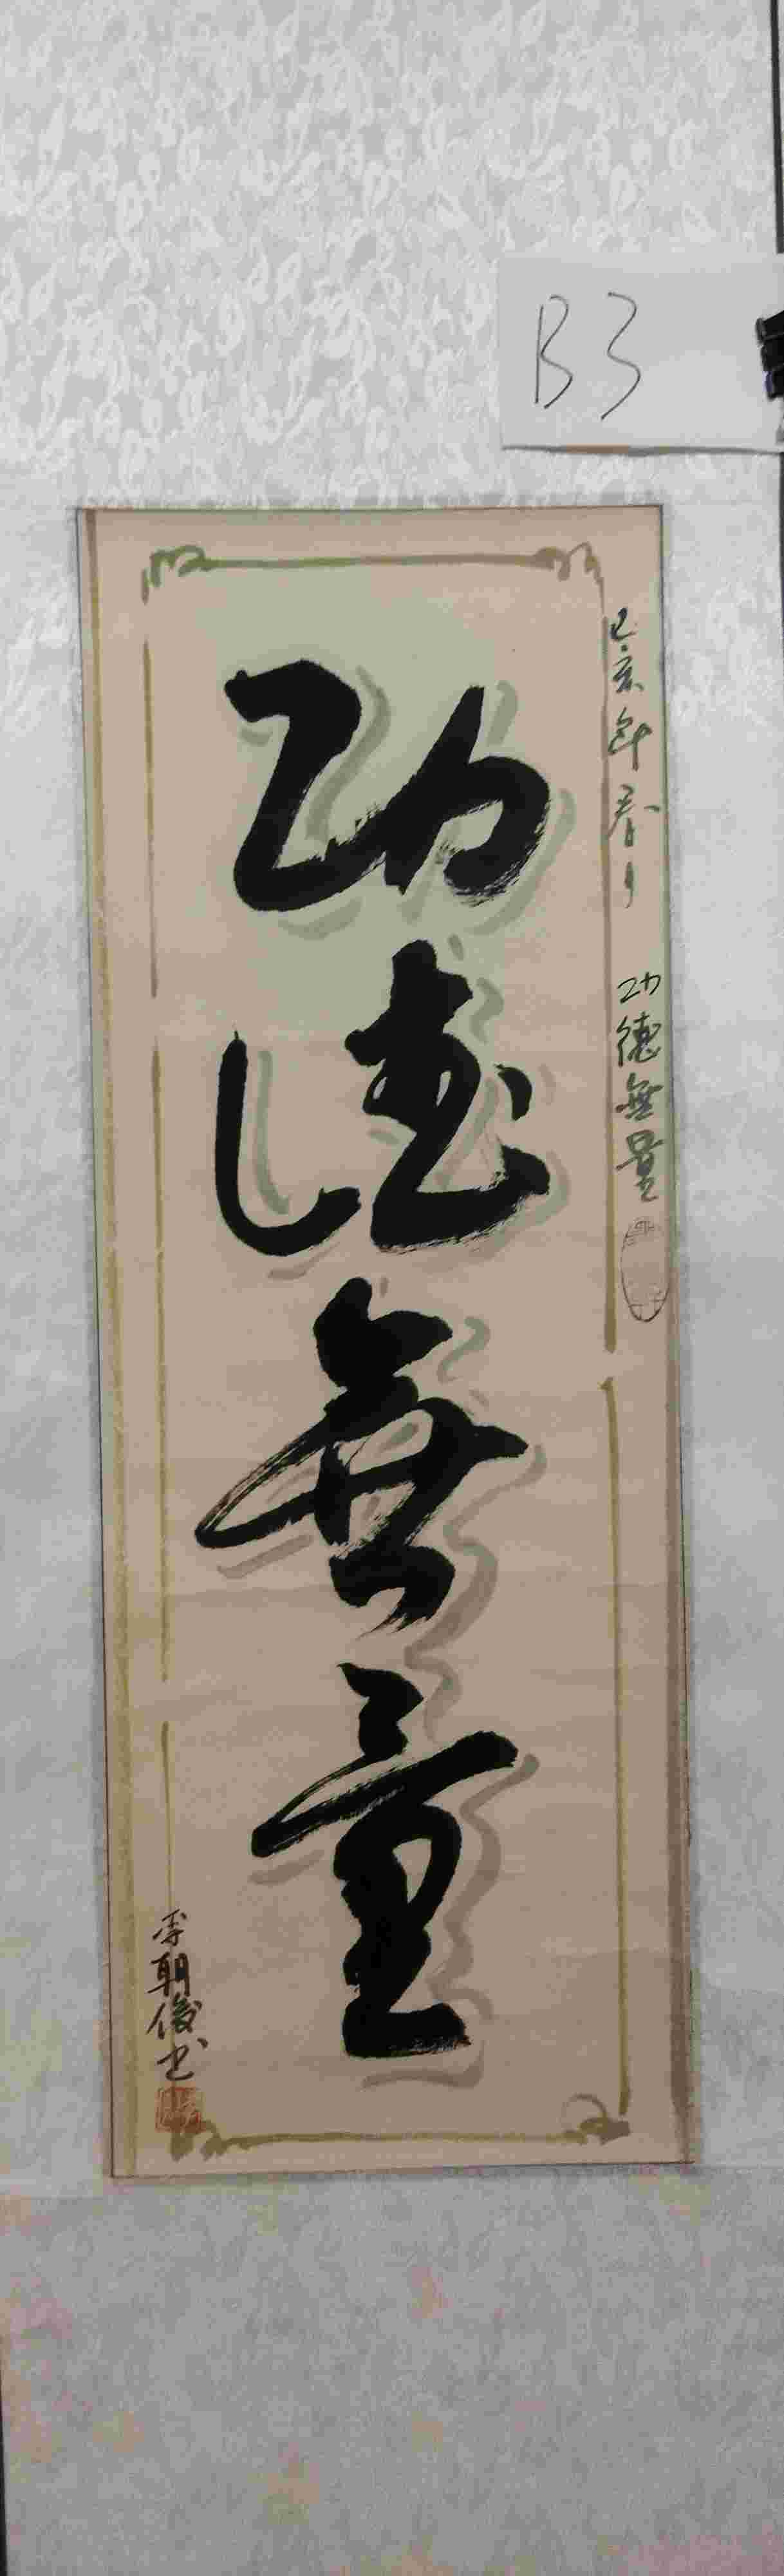 B3
己亥年春月 功德無量
功德無量
李朝俊书